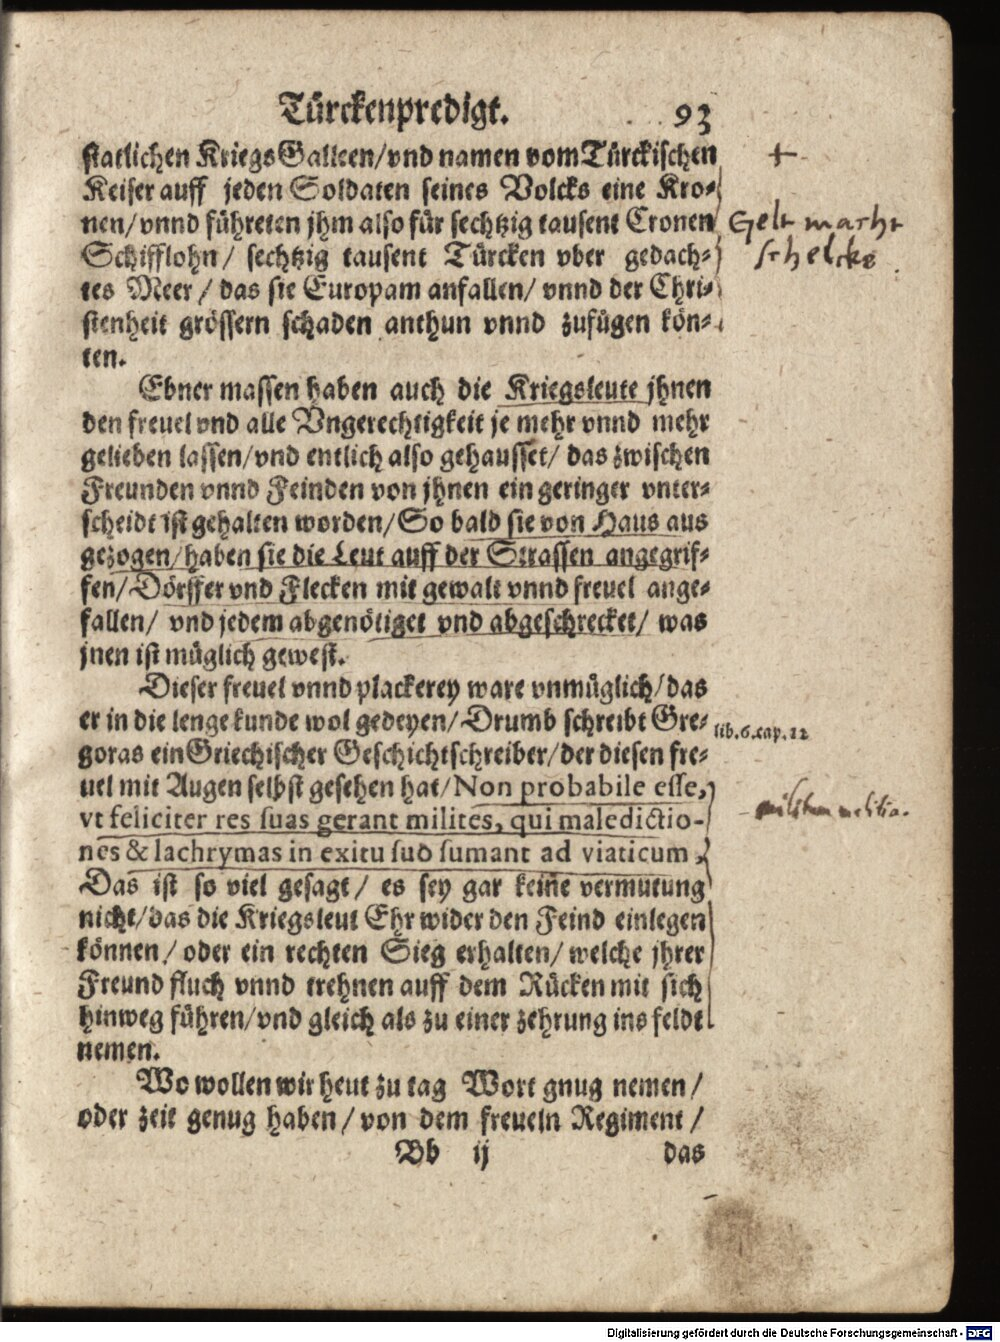 Türckenpredigt. 93
statlichen KriegsGalleen/vnd namen vom Türckischen +
Keiser auff jeden Soldaten seines Volcks eine Kro-
nen/vnnd führeten jhm also für sechtzig tausent Cronen Gelt macht
Schifflohn/ sechtzig tausent Türcken vber gedach- schelcke
tes Meer/das sie Europam anfallen/vnnd der Chri-
stenheit grössern schaden anthun vnnd zufügen kön-
ten.
Ebner massen haben auch die Kriegsleute jhnen
den freuel vnd alle Vngerechtigkeit je mehr vnnd mehr
gelieben lassen/vnd entlich also gehausset/das zwischen
Freunden vnnd Feinden von jhnen ein geringer vnter-
scheidt ist gehalten worden/So bald sie von Haus aus
gezogen/haben sie die Leut auff der Strassen angegrif-
fen/Dörffer vnd Flecken mit gewalt vnnd freuel ange-
fallen/ vnd jedem abgenötiget vnd abgeschrecket/ was
jnen ist müglich gewest.
Dieser freuel vnnd plackerey ware vnmüglich/das
er in die lenge kunde wol gedeyen/Drumb schreibt Gre- lib.6.cap.12
goras ein Griechischer Geschichtschreiber/der diesen fre-
uel mit Augen selbst gesehen hat/Non probabile esse,
vt feliciter res suas gerant milites, qui maledictio-
nes & lachrymas in exitu suo sumant ad viaticum,
Das ist so viel gesagt/ es sey gar keine vermutung
nicht/das die Kriegsleut Ehr wider den Feind einlegen
können/oder ein rechten Sieg erhalten/welche jhrer
Freund fluch vnnd trehnen auff dem Rücken mit sich
hinweg führen/vnd gleich als zu einer zehrung ins feldt
nemen.
Wo wollen wir heut zu tag Wort gnug nemen/
oder zeit genug haben/von dem freueln Regiment/
Bb ij das
Digitalisierung gefördert durch die Deutsche Forschungsgemeinschaft - DFG